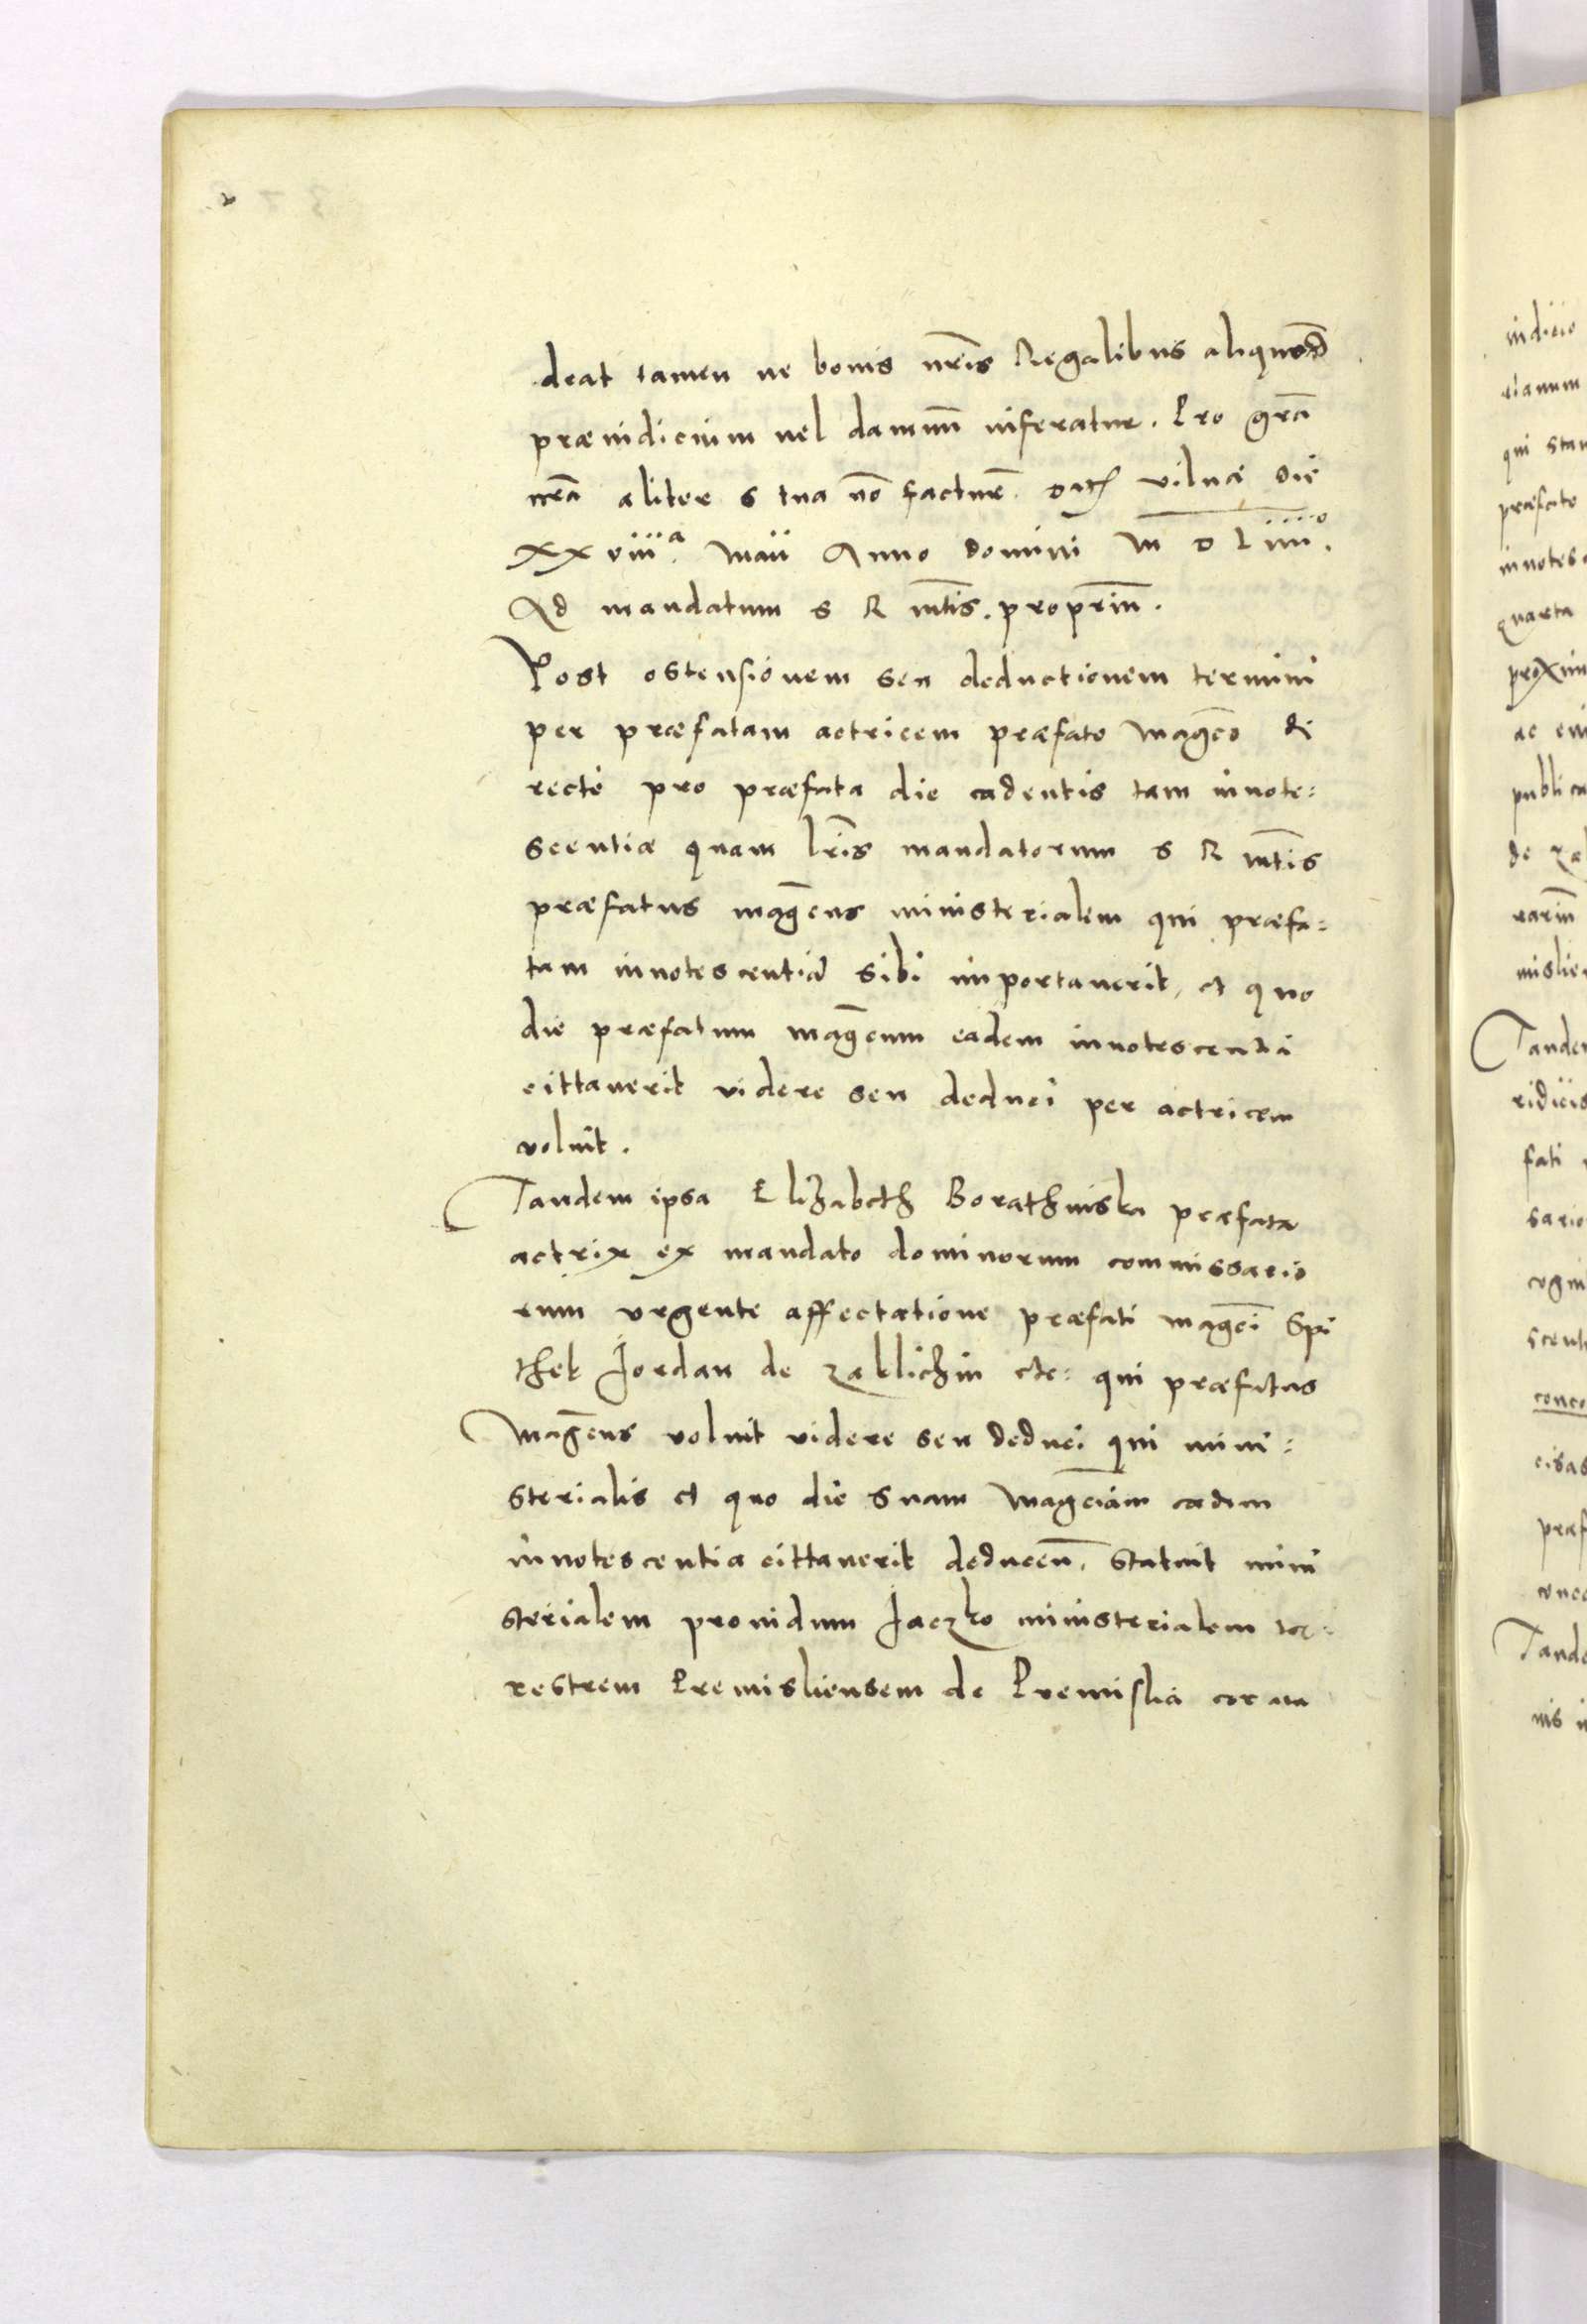 deat tamen ne bonis nr̄is Regalibus aliquod
præiudicium uel damnū inferatur. Pro gr̄a
nr̄a aliter s tua nō factur̄ Datȝ Vilnæ Die
XXviiiᵃ. Maii Anno Domini M D Liiiiᵒ.
Ad mandatum S R mt̄is. propriū.
Post ostensionem seu deductionem termini
per præfatam actricem præfato Maḡco di
recte pro præfata die cadentis tam innote=
scentiæ quam lr̄is mandatorum S R mt̄is
præfatus maḡcus ministerialem qui præfa=
tam innotescentiā sibi importauerit, et quo
die præfatum maḡcum eadem innotescentia
cittauerit videre seu deduci per actricem
voluit.
Tandem ipsa Elizabeth Borathinska præfata
actrix ex mandato dominorum commissario
rum vrgente affectatione præfati maḡci Spi
thek Jordan de Zaklichin etc: qui præfatus
Maḡcus voluit videre seu deduci qui mini=
sterialis et quo die suam Maḡciam eadem
innotescentia cittauerit deducen̄. Statuit mini
sterialem prouidum Jaczko ministerialem ter=
restrem Premisliensem de Premislia cor ata
iudicio
qui stat
præfato
innotesc
quarta
proxim
publica
de Zak
Tandem
ridicis
fati
sario
cogni
scent
conco
præf
Tande
nis